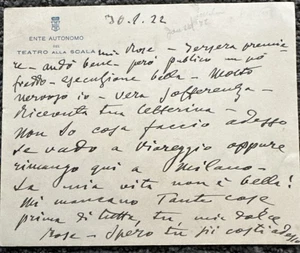 30.1.22
ENTE AUTONOMO
DEL
TEATRO ALLA SCALA
mia Rose - Iersera premiè
re - andò bene - però pubblico un pò
freddo - esecuzione bella - Molto
nervoso io - vera sofferenza -
Ricevuta tua letterina -
non so cosa faccio adesso
se vado a Viareggio oppure
rimango qui a Milano -
La mia vita non è bella!
Mi mancano tante cose
prima di tutto, tu, mia dolce
Rose - Spero tu sii costì adesso